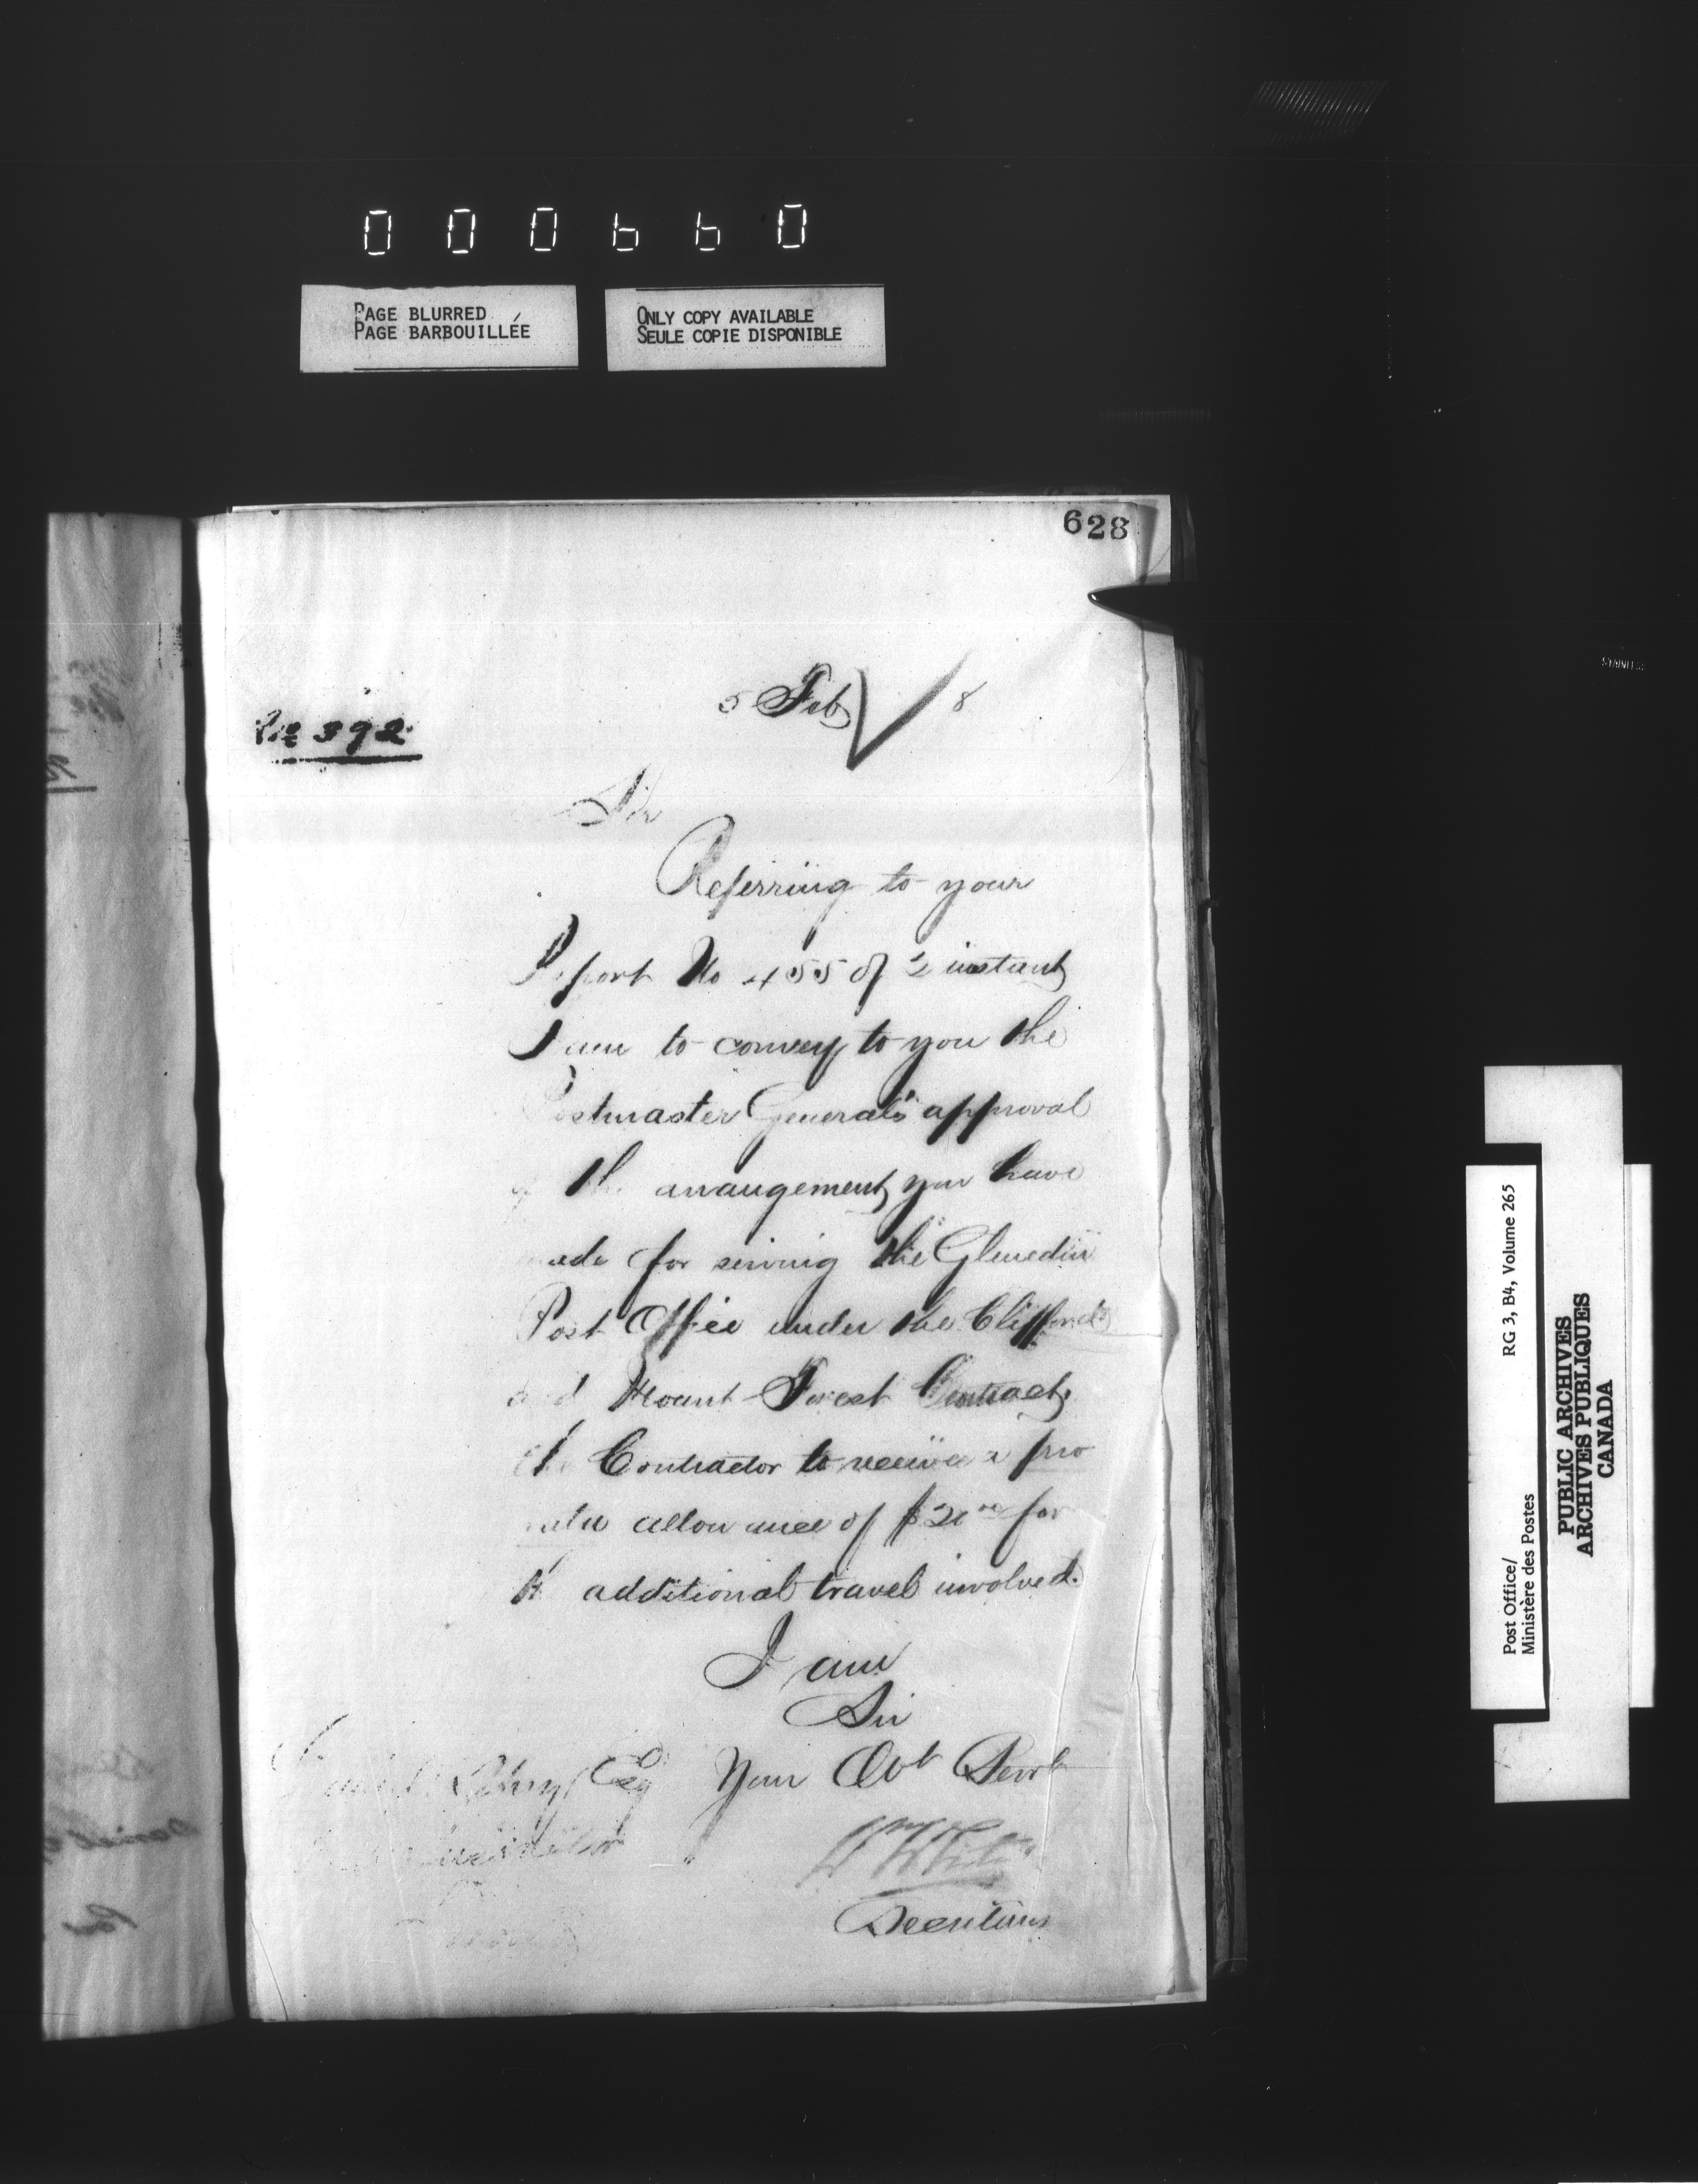 000660
PAGE BLURRED
PAGE BARBOUILLÉE
ONLY COPY AVAILABLE
SEULE COPIE DISPONIBLE
628
5 Feb 8
No 392
Sir
Referring to your
Report No 455 of 2 instant
I am to convey to you the
Postmaster General's approval
of the arrangement you have
made for serving the Glenedin
Post Office under the Clifford
and Mount Forest Contract,
the Contractor to receive a pro
rata allowance of for
the additional travel involved.
I am
Sir
Your Obt Servt
Esq
Secretary
Post Office/
Ministère des Postes
RG 3, B4, Volume 265
PUBLIC ARCHIVES
ARCHIVES PUBLIQUES
CANADA